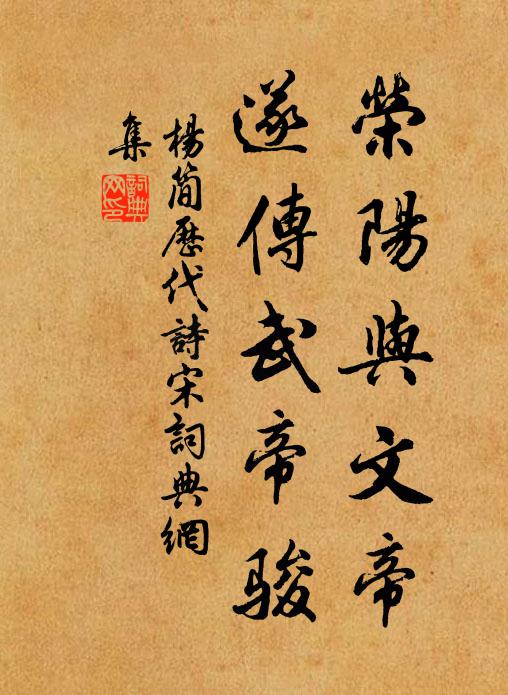 榮陽與文帝
遂傳武帝骏
楊简歷代詩宋詞典網
集
詞典网印